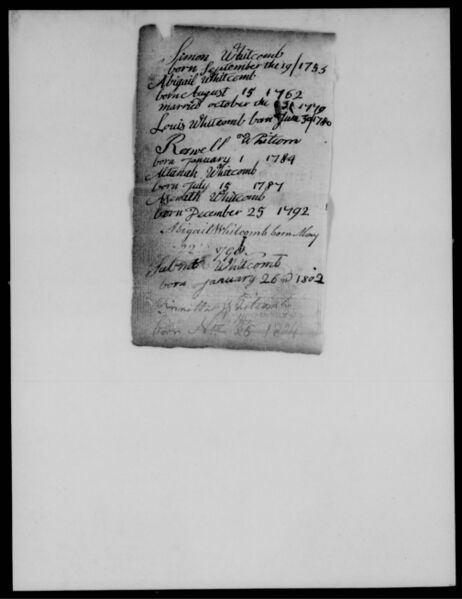 Simon Whitcomb
born September the 19/1755
Abigail Whitcomb
born August 15 1762
married october the 31 1779
Louis Whitcomb born June 30/1780
Roswell Whitcom
born January 1 1784
Altanah Whitcomb
born July 15 1787
Asenath Whitcomb
born December 25 1792
Abigail Whitcomb born May
Submit Whitcomb
born January 26 1802
Whitcomb
born 25 1804